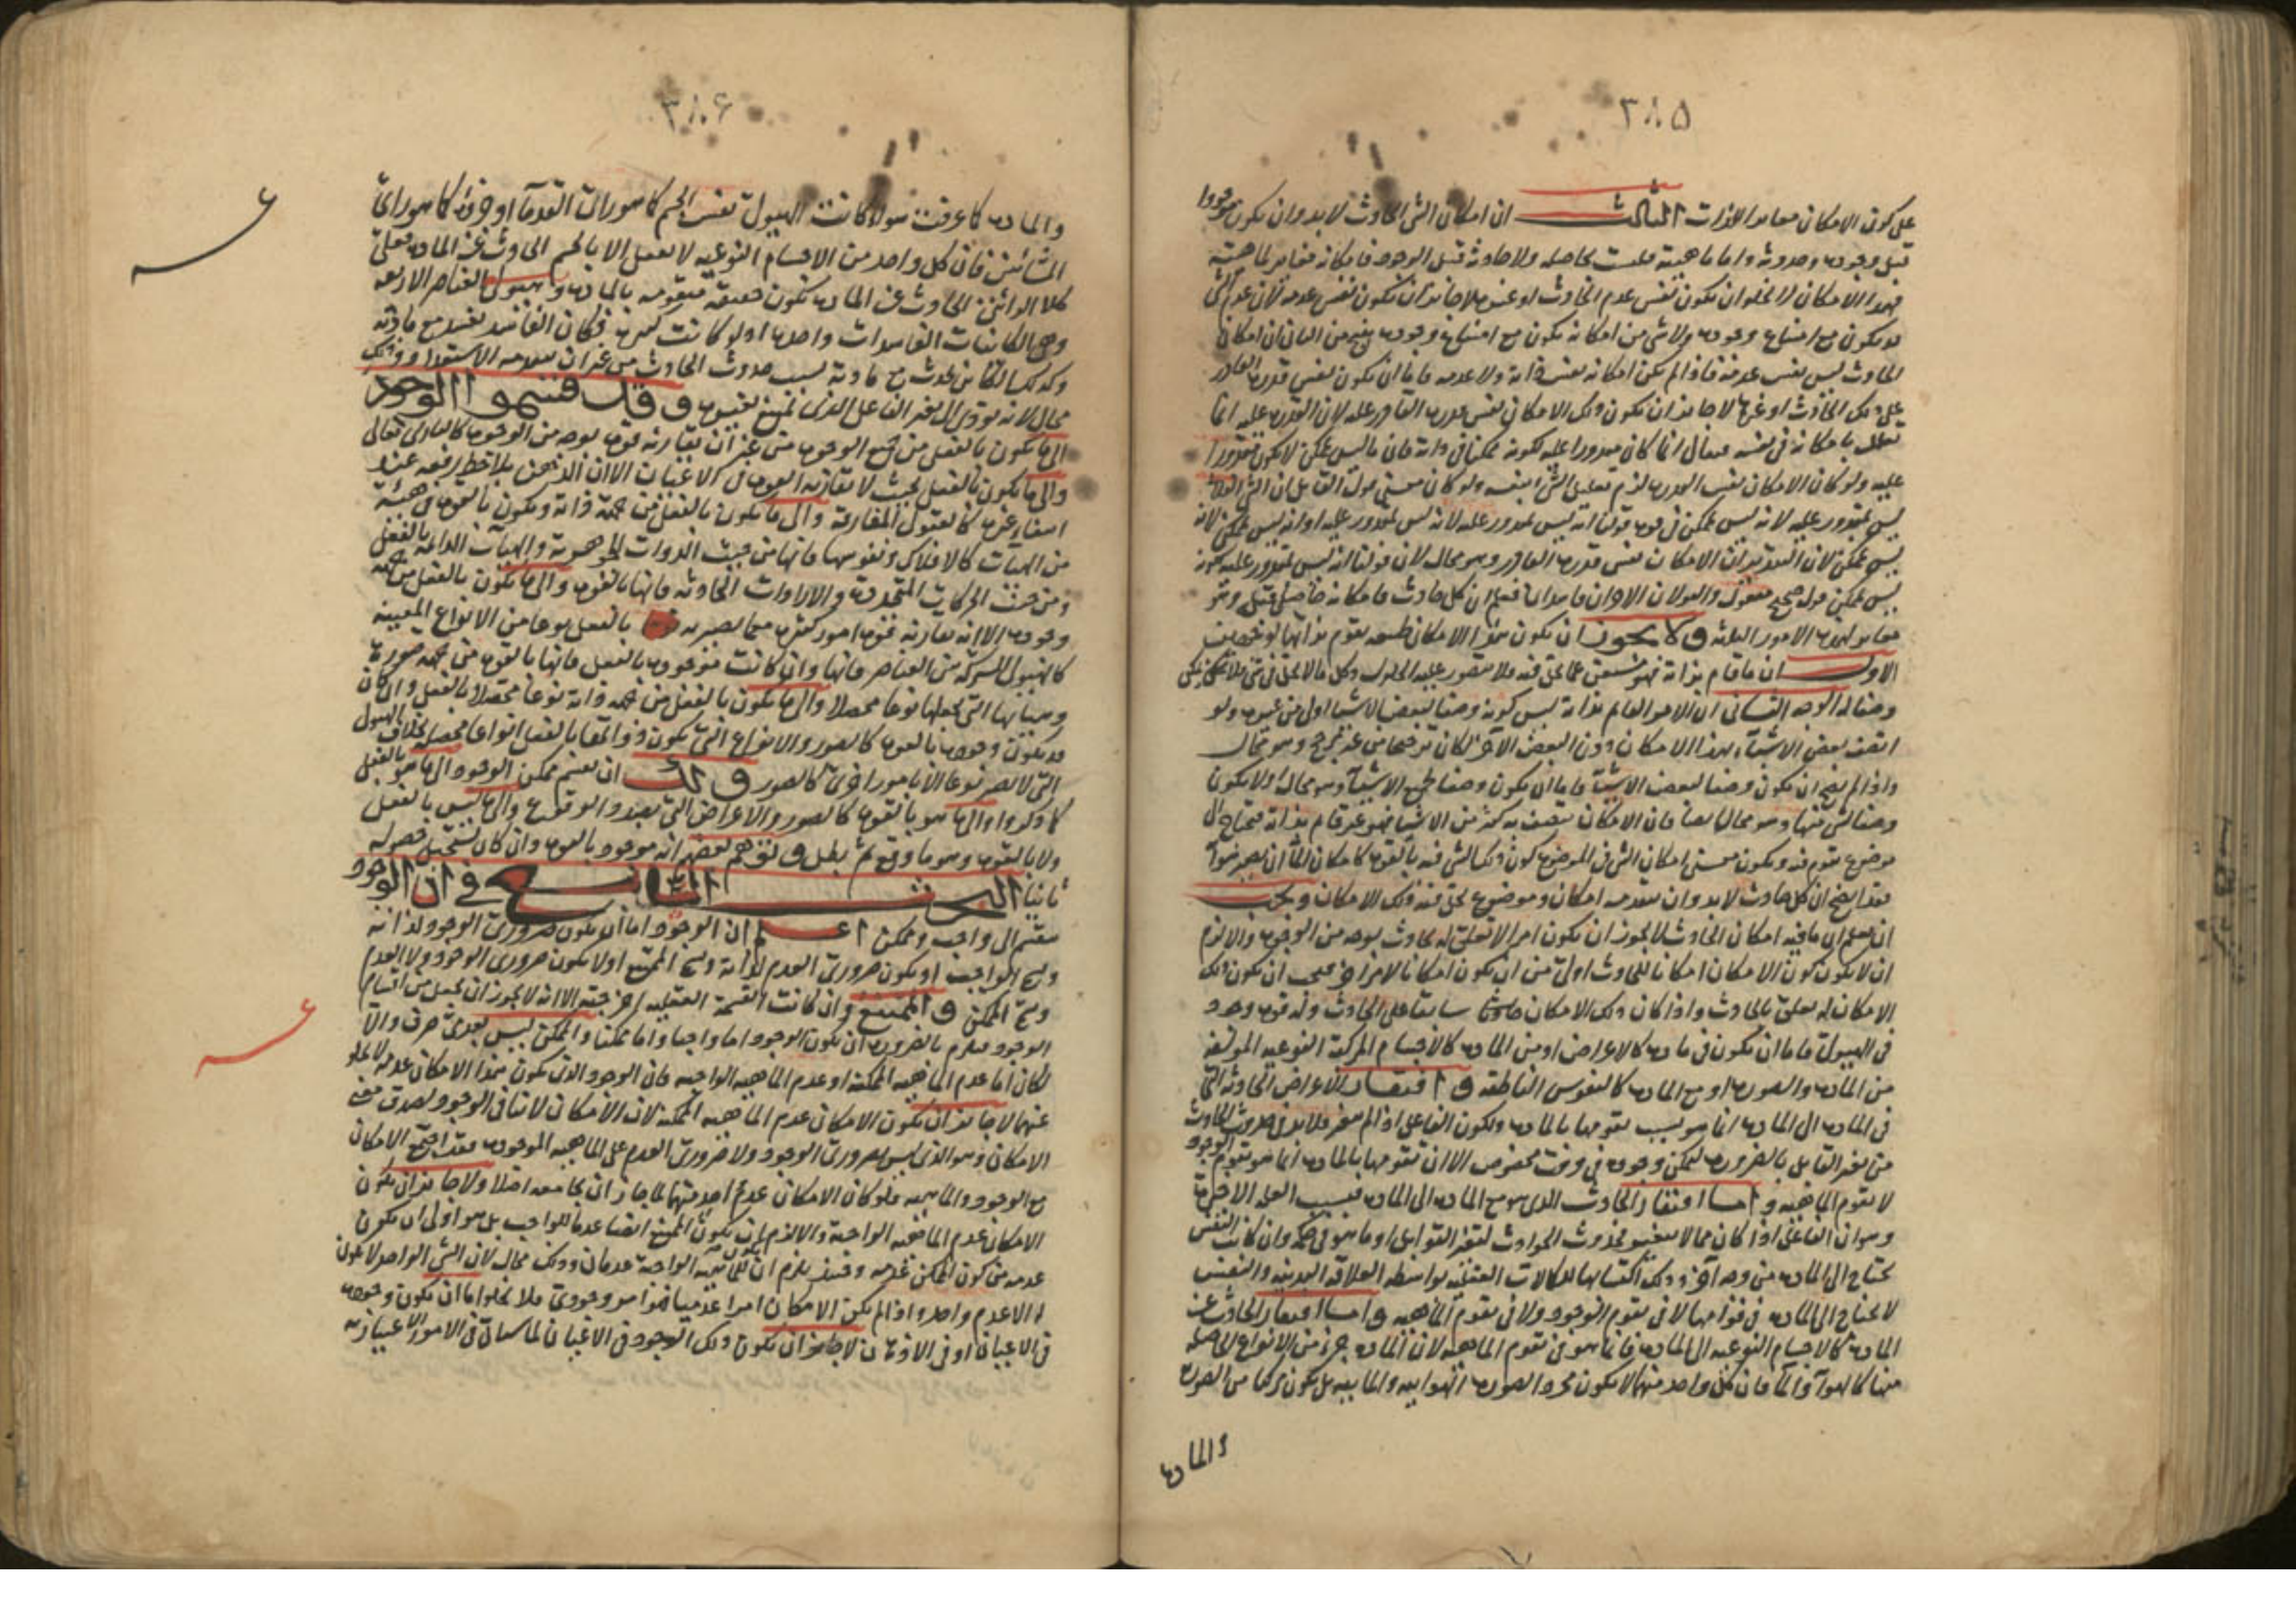 ٣٨٥
على كون الامكان مغايرا للذات الثالث ان امكان الشئ الحادث لا بد وان يكون موجودا
قبل وجوده وحدوثه واما ماهيته فليست بحاصلة ولا حادثة قبل الوجود فامكانه مغاير لماهيته
فهذا الامكان لا يخلو ان يكون نفس عدم الحادث او غيره لا جائز ان يكون نفس عدمه لان عدم الشئ
قد يكون مع امتناع وجوده ولا شئ من امكانه يكون مع امتناع وجوده ينتج من الثانى ان امكان
الحادث ليس نفس عدمه فاذا لم يكن امكانه نفس ذاته ولا عدمه فاما ان يكون نفس قدرة القادر
على ذلك الحادث او غيرها لا جائز ان يكون ذلك الامكان نفس قدرة القادر عليه لان القدرة عليه انما
تعلل بامكانه فى نفسه فيقال انما كان مقدورا عليه لكونه ممكنا فى ذاته فان ما ليس بممكن لا يكون مقدورا
عليه ولو كان الامكان نفس القدرة لزم تعليل الشئ بنفسه ولو كان معنى قول القائل ان الشئ الفلانى
ليس بمقدور عليه لانه ليس بممكن فى قوة قولنا انه ليس بمقدور عليه لانه ليس بمقدور عليه او انه ليس بممكن لانه
ليس بممكن لان التقدير ان الامكان نفس قدرة القادر وهو محال لان قولنا انه ليس بمقدور عليه لكونه
ليس بممكن قول صحيح معقول والقولان الاولان فاسدان فعلم ان كل حادث فامكانه حاصل قبله وهو
مغاير لهذه الامور الثلثة ولا يجوز ان يكون هذا الامكان طبيعة تقوم بذاتها لوجهين
الاول ان ما قام بذاته فهو مستغن عما يحل فيه فلا يتصور عليه الحلول وكل ما لا يحل فى شئ فلا يمكن ان يكون
وصفا له الوجه الثانى ان الامر القائم بذاته ليس كونه وصفا لبعض الاشيا اولى من غيره ولو
اتصف بعض الاشياء بهذا الامكان دون البعض الآخر لكان ترجيحا من غير مرجح وهو محال
واذا لم يصح ان يكون وصفا لبعض الاشياء فاما ان يكون وصفا لجميع الاشياء وهو محال او لا يكون
وصفا لشئ منها وهو محال ايضا فان الامكان يتصف به كثير من الاشيا فهو غير قائم بذاته فيحتاج الى
موضوع يقوم فيه ويكون معنى امكان الشئ فى الموضوع كون ذلك الشئ فيه بالقوة كامكان الماء ان يصير هواء
فقد اتضح ان كل حادث لا بد وان يتقدمه امكان وموضوع يحل فيه ذلك الامكان ويجب
ان تعلم ان ما فيه امكان الحادث لا يجوز ان يكون امرا لا تعلق له بحادث بوجه من الوجوه والا لزم
ان لا يكون كون الامكان امكانا للحادث اولى من ان يكون امكانا لامر آخر فيجب ان يكون ذلك
الامكان له تعلق بالحادث واذا كان ذلك الامكان سابقا على الحادث وله قوة وجود
فى الهيولى فاما ان يكون فى مادة كالاعراض او من المادة كالاجسام المركبة النوعية المؤلفة
من المادة والصورة او مع المادة كالنفوس الناطقة وافتقار الاعراض الحادثة التى
فى المادة الى المادة انما هو بسبب تقومها بالمادة ولكون الفاعل اذا لم يتغير فلا بد فى حدوث الحادث
من تغير القابل بالضرورة ليمكن وجوده فى وقت مخصوص الا ان تقومها بالمادة انما هو تقوم الوجود
لا تقوم الماهية واما افتقار الحادث الذى هو مع المادة الى المادة فبسبب العلة الاخيرة
وهو ان الفاعل اذا كان مما لا يتغير فحدوث الحوادث لتغير القوابل او ما هو فى حكمه وان كانت النفس
تحتاج الى المادة من وجه آخر وذلك اكتسابها للكمالات العقلية بواسطة العلاقة البدنية والنفس
لا تحتاج الى المادة فى قوامها لا فى تقوم الوجود ولا فى تقوم الماهية واما افتقار الحادث عن
المادة كالاجسام النوعية الى المادة فانما هو فى تقوم الماهية لان المادة جزء من الانواع الحاصلة
منها كالهواء والماء فان كل واحد منهما لا يكون مجرد الصورة الهوائية والمائية بل يكون مركبا من الصورة
والمادة
٣٨٦
والمادة كما عرفت سواء كانت الهيولى نفس الجسم كما هو راى القدماء او جزءه كما هو راى
المشائين فان كل واحد من الاجسام النوعية لا يعقل الا بالجسم الحادث عن المادة فعلى
كلا الرائين الحادث عن المادة تكون حقيقته متقومة بالمادة وهيولى العناصر الاربعة
وهى الكائنات الفاسدات واحدة او لو كانت كثيرة فكان الفاسد يفسد مع مادته
وكذلك الكائن يحدث مع مادته بسبب حدوث الحادث من غير ان يتقدمه الاستعداد وذلك
محال لانه يؤدى الى تغير الفاعل الذى يمتنع تغييره وقد قسموا الوجود
الى ما يكون بالفعل من جميع الوجوه من غير ان يقارنه قوة بوجه من الوجوه كالبارى تعالى
والى ما يكون بالفعل بحيث لا تقارنه القوة فى الاعيان الا ان الذهن يلاحظ رفعه عند
ارتفاع غيره كالعقول المفارقة والى ما يكون بالفعل من جهة ذاته ويكون بالقوة فى هيئة
من الهيئات كالافلاك ونفوسها فانها من حيث الذوات الجوهرية والهيئات الدائمة بالفعل
ومن حيث الحركات المتجددة والارادات الحادثة فانها بالقوة والى ما يكون بالفعل من جهة
وجوده الا انه تقارنه قوة امور كثيرة مما يصير به بالفعل نوعا من الانواع المعينة
كالهيولى المشتركة من العناصر فانها وان كانت موجودة بالفعل فانها بالقوة من جهة صورة
وهيئاتها التى تجعلها نوعا محصلا والى ما يكون بالفعل من جهة ذاته نوعا محصلا بالفعل والى كان
قد يكون وجوده بالقوة كالصور والانواع التى تكون ذواتها بالفعل انواعا محصلة بخلاف الهيولى
التى لا تصير نوعا الا بامور اخرى كالصور ولك ان تقسم ممكن الوجود الى ما هو بالفعل
كما ذكروا والى ما هو بالقوة كالصور والاعراض التى بصدد الوقوع والى ما ليس بالفعل
ولا بالقوة وهو ما وقع ثم بطل وتوهم بعضهم انه موجود بالقوة وان كان يستحيل حصوله
ثانيا البحث التاسع فى ان الوجود
ينقسم الى واجب وممكن اعلم ان الوجود اما ان يكون ضرورى الوجود لذاته
ويسمى الواجب او يكون ضرورى العدم لذاته ويسمى الممتنع او لا يكون ضرورى الوجود ولا العدم
ويسمى الممكن والممتنع وان كانت القسمة العقلية اخرجته الا انه لا يجوز ان يجعل من اقسام
الوجود فيلزم بالضرورة ان يكون الوجود اما واجبا واما ممكنا والممكن ليس بعدمى صرف والا
لكان اما عدم الماهية الممكنة او عدم الماهية الواجبة فان الوجود الذى يكون هذا الامكان عدمه لا يخلو
عنهما لا جائز ان يكون الامكان عدم الماهية الممكنة لان الامكان لا ينافى الوجود لصدق معنى
الامكان وهو الذى ليس بضرورى الوجود ولا ضرورى العدم على الماهية الموجودة فقد اجتمع الامكان
مع الوجود والماهية فلو كان الامكان عدم احديهما لما جاز ان يجامعه اصلا ولا جائز ان يكون
الامكان عدم الماهية الواجبة والا لزم ان يكون الممتنع ايضا عدما للواجب بل هو اولى ان يكون
عدمه من كون الممكن عدمه وحينئذ يلزم ان يكون للماهية الواجبة عدمان وذلك محال لان الشئ الواحد لا يكون
له الا عدم واحد واذا لم يكن الامكان امرا عدميا فهو امر وجودى فلا يخلو اما ان يكون وجوده
فى الاعيان او فى الاذهان لا جائز ان يكون ذلك الوجود فى الاعيان لما سيأتى فى الامور الاعتبارية